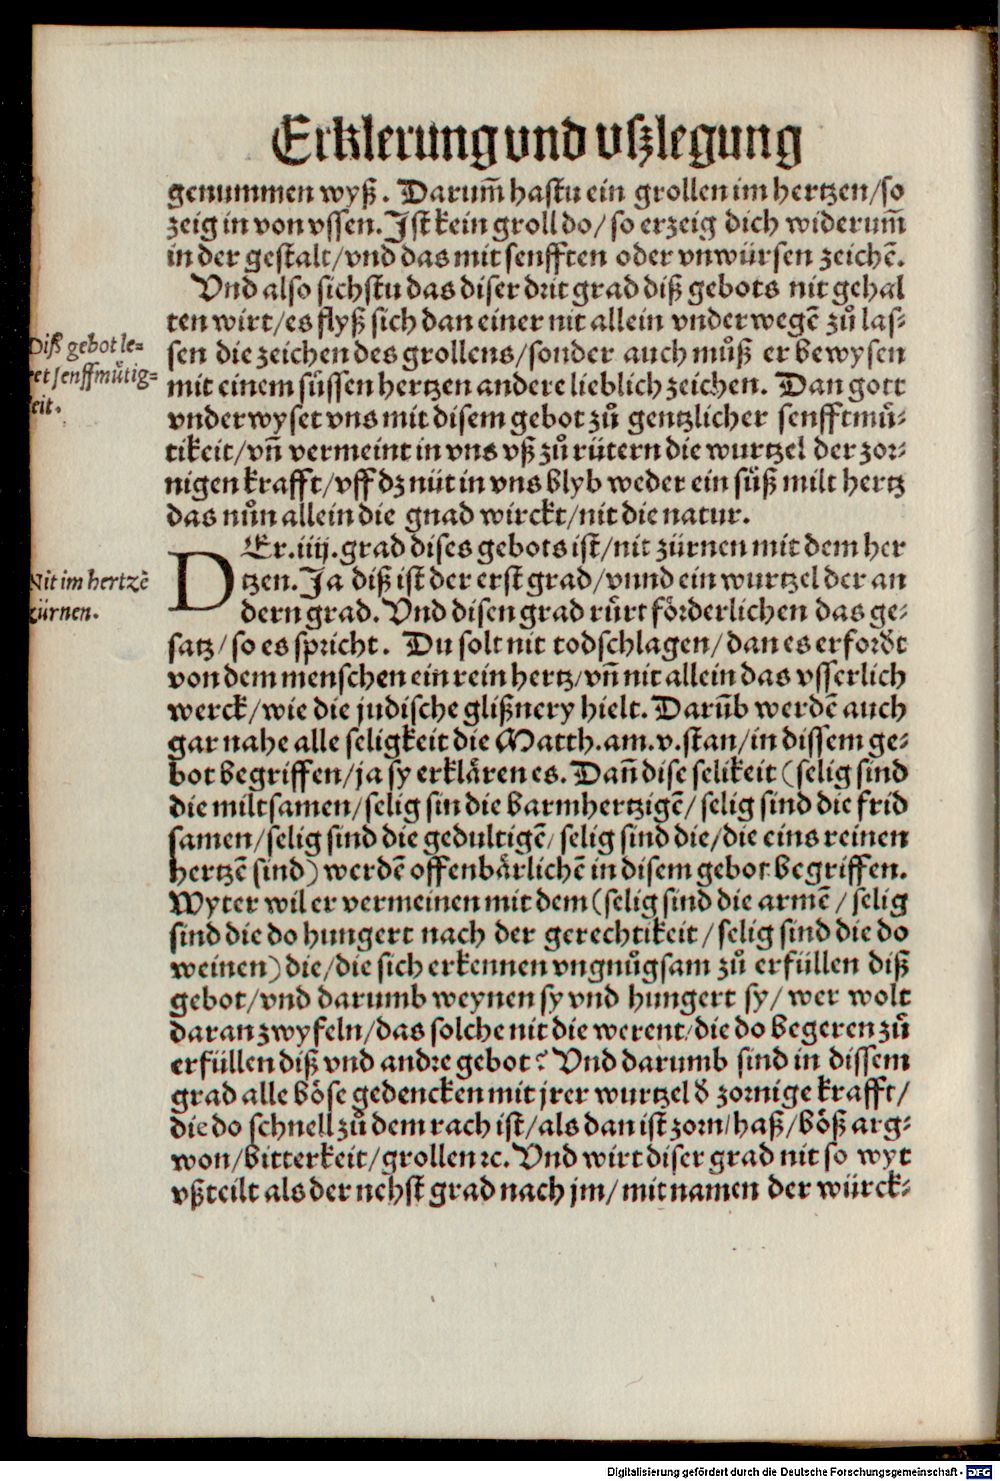 Erklerung vnd vſzlegung
genummen wyß. Darum̄ haſtu ein grollen im hertzen/ſo
zeig in von vſſen. Iſt kein groll do/ ſo erzeig dich widerum̄
in der geſtalt/vnd das mit ſenfften oder vnwürſen zeichē.
Vnd alſo ſichſtu das diſer drit grad diß gebots nit gehal
ten wirt/es flyß ſich dan einer nit allein vnderwegē zů laſ⸗
ſen die zeichen des grollens/ſonder auch můß er bewyſen
mit einem ſüſſen hertzen andere lieblich zeichen. Dan gott
vnderwyſet vns mit diſem gebot zů gentzlicher ſenfftmü⸗
tikeit/vn̄ vermeint in vns vß zů rütern die wurtzel der zor⸗
nigen krafft/vff dz nüt in vns blyb weder ein ſüß milt hertz
das nůn allein die gnad wirckt/nit die natur.
Diß gebot le⸗
ret ſenffmůtig⸗
keit.
DEr.iiij.grad diſes gebots iſt/nit zürnen mit dem her
tzen. Ja diß iſt der erſt grad/vnnd ein wurtzel der an
dern grad. Vnd diſen grad rürt förderlichen das ge⸗
ſatz/ſo es ſpricht. Du ſolt nit todſchlagen/dan es erfordt
von dem menſchen ein rein hertz/vn̄ nit allein das vſſerlich
werck/wie die judiſche glißnery hielt. Darūb werdē auch
gar nahe alle ſeligkeit die Matth.am.v.ſtan/in diſſem ge⸗
bot begriffen/ja ſy erklären es. Dan̄ diſe ſelikeit (ſelig ſind
die miltſamen/ſelig ſin die barmhertzigē/ ſelig ſind die frid
ſamen/ſelig ſind die gedultigē/ ſelig ſind die/die eins reinen
hertzē ſind) werdē offenbärlichē in diſem gebot begriffen.
Wyter wil er vermeinen mit dem (ſelig ſind die armē / ſelig
ſind die do hungert nach der gerechtikeit/ſelig ſind die do
weinen) die/die ſich erkennen vngnůgſam zů erfüllen diß
gebot/vnd darumb weynen ſy vnd hungert ſy/ wer wolt
daran zwyfeln/das ſolche nit die werent/die do begeren zů
erfüllen diß vnd andre gebot? Vnd darumb ſind in diſſem
grad alle böſe gedencken mit jrer wurtzel ð zornige krafft/
die do ſchnell zů dem rach iſt/als dan iſt zorn/haß/böß arg⸗
won/bitterkeit/grollen ꝛc. Vnd wirt diſer grad nit ſo wyt
vßteilt als der nehſt grad nach jm/ mit namen der würck⸗
Nit im hertzē
zürnen.
Digitalisierung gefördert durch die Deutsche Forschungsgemeinschaft - DFG